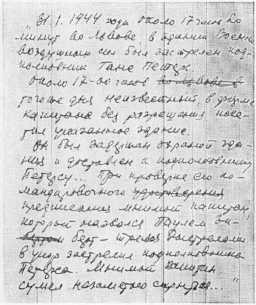 „31.1.1944 года около 17 часов 20
минут во Львове в здании Военно-
воздушных сил был застрелен под-
полковник Ганс Петерс.
Около 17-00 часов во Львове в
того же дня неизвестный в форме
капитана без разрешения посе-
тил указанное здание.
Он был задержан охраной зда-
ния и доставлен к подполковнику
Петерсу... При проверке его ко-
мандировочного удостоверения
предписания мнимый капитан,
который назвался Паулем Зи-
берт – тремя выстрелами
в упор застрелил подполковника
Петерса. Мнимый капитан
сумел незаметно скрыться..."